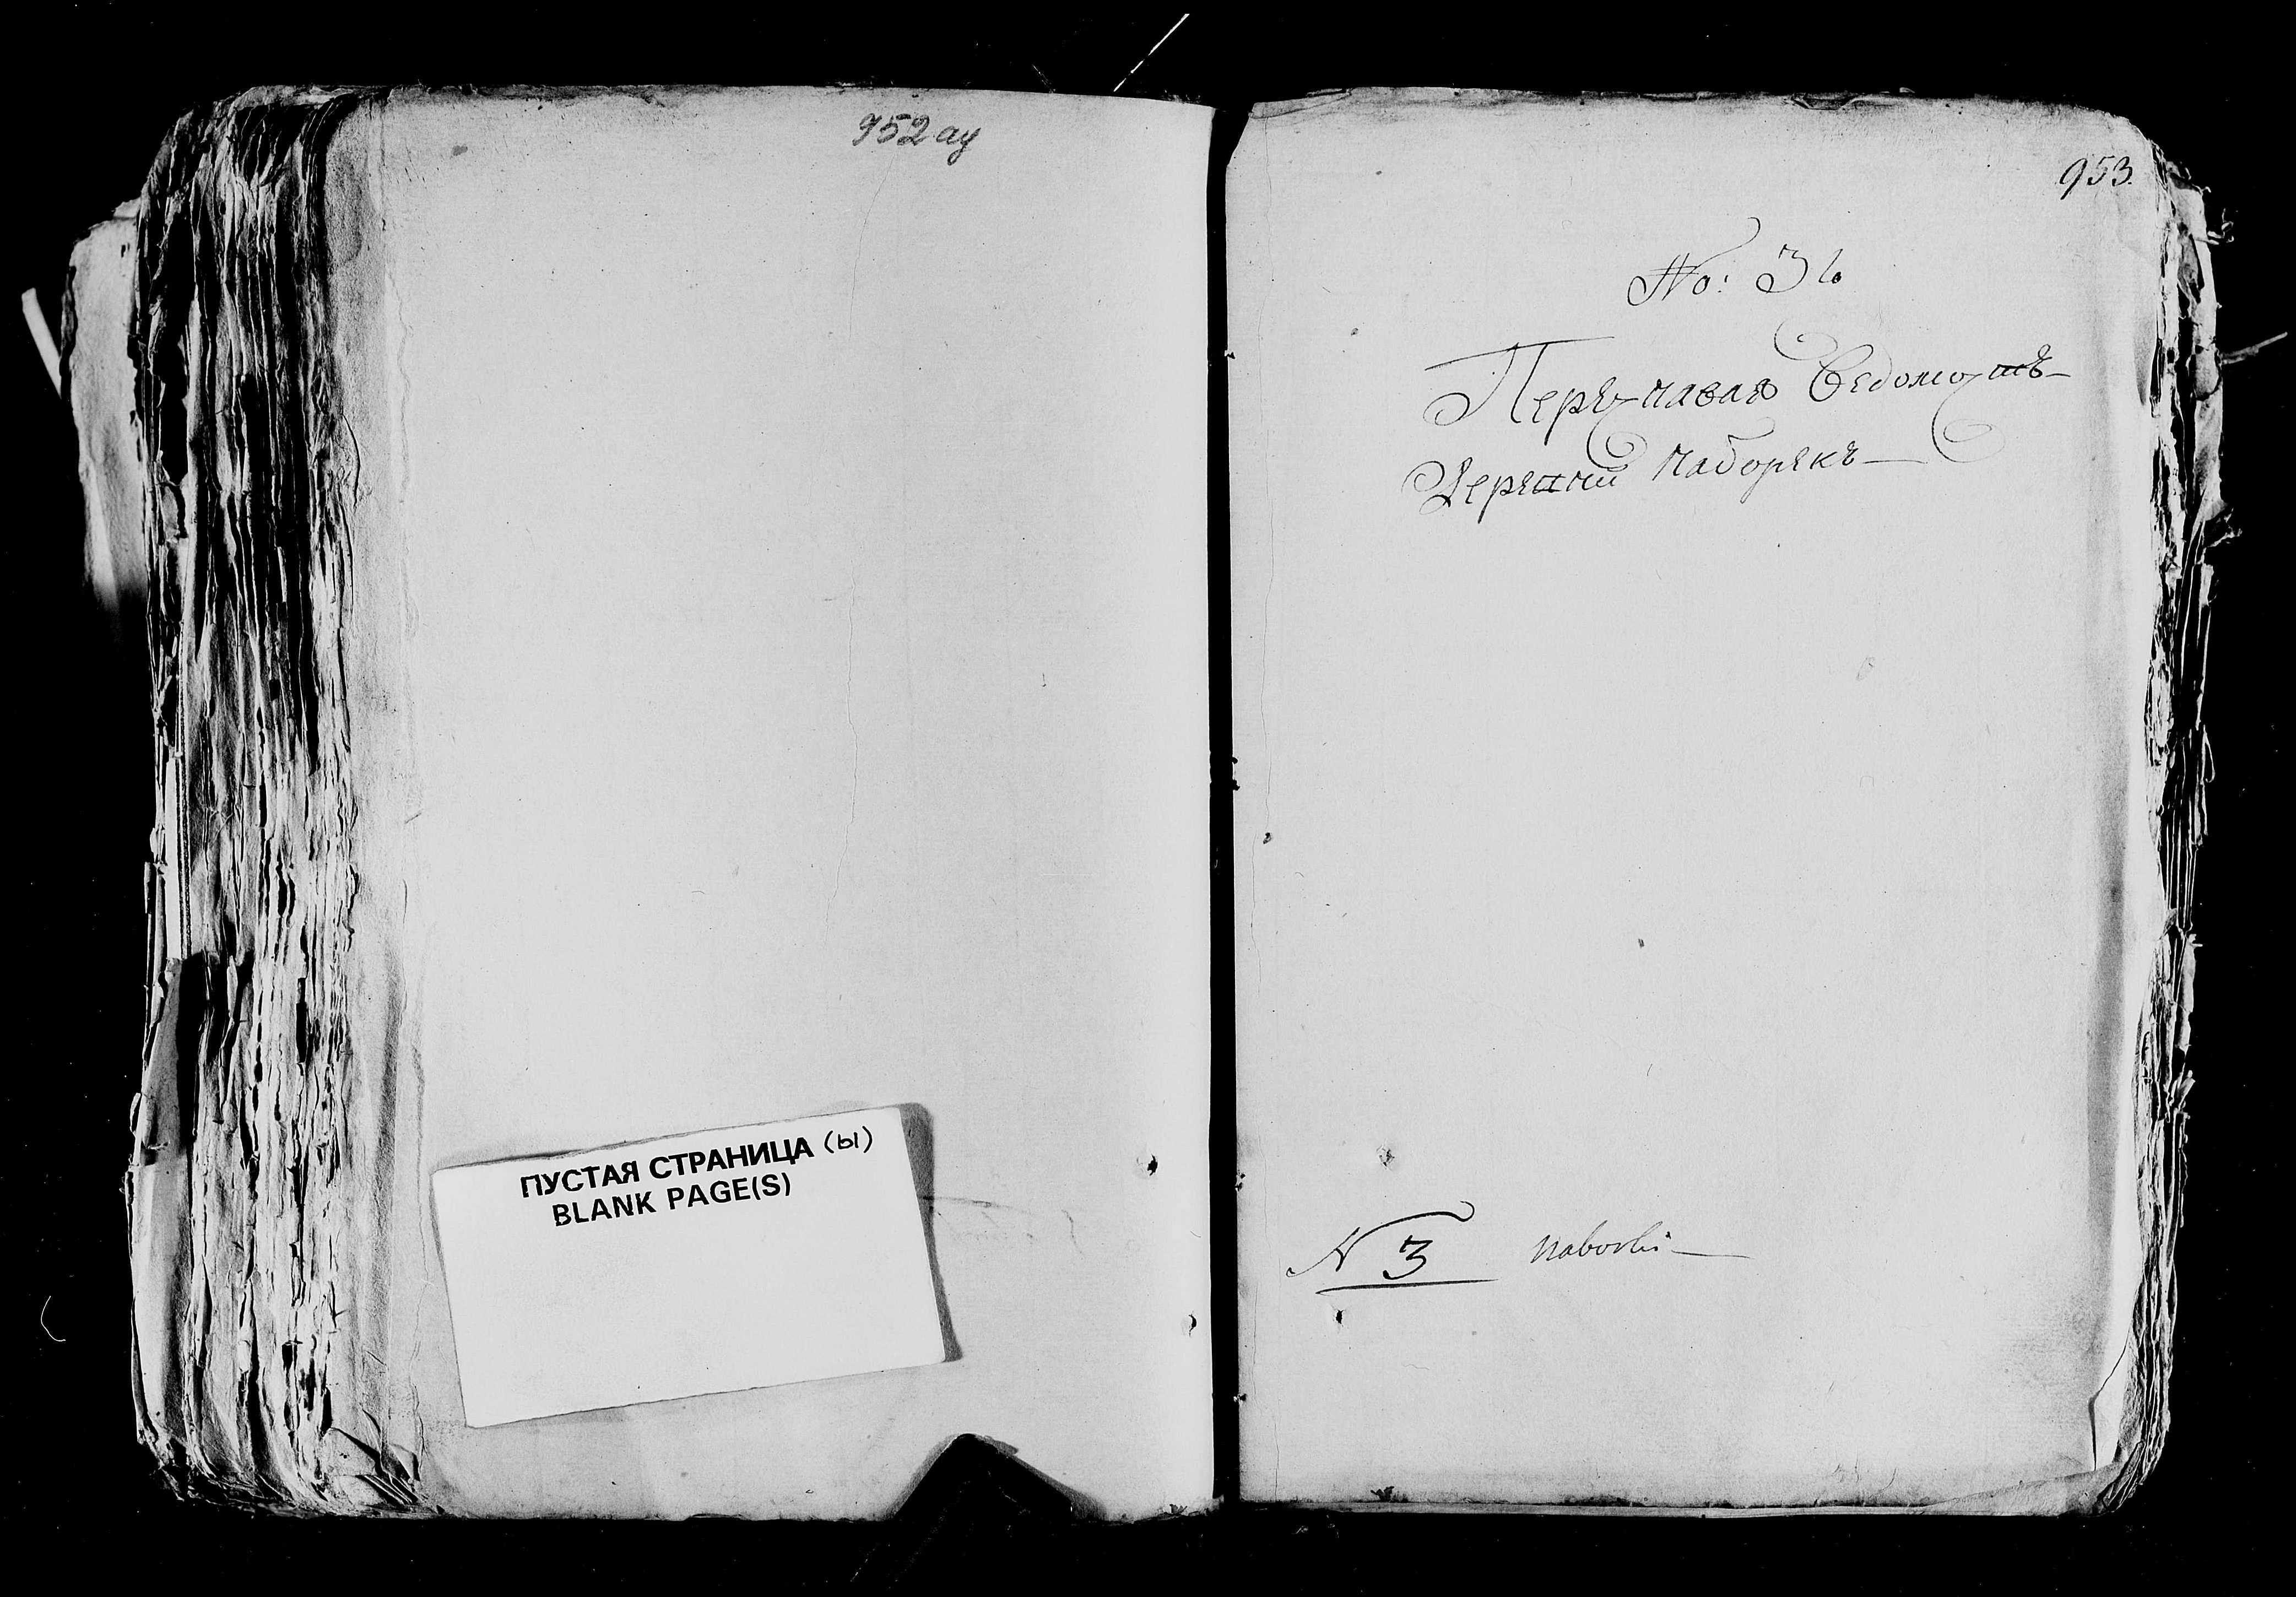 952 ay
ПУСТАЯ СТРАНИЦА (ы)
BLANK PAGE(S)
953.
No: 36
Ведомость
Деревни Наборекъ
N 3 Naborki